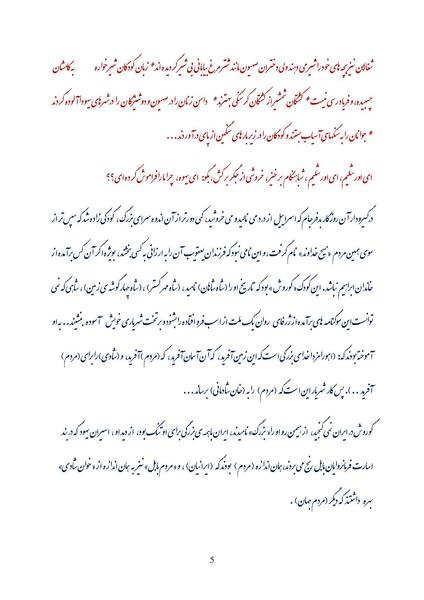 شغالان نیز بچه های خود را شیر می دهند ولی دختران صهیون مانند شترمرغ بیابانی بی شیر گردیده اند* زبان کودکان شیرخواره به کامشان
چسبیده، و فریادرسی نیست* کشتگان شمشیر از کشتگان گرسنگی بهترند* دامن زنان را در صهیون و دوشیزگان را در شهرهای یهودا آلوده کردند
* جوانان را به سنگهای آسیاب بستند و کودکان را در زیر بارهای سنگین از پای درآوردند...
ای اورشلیم، ای اورشلیم، شباهنگام برخیز، خروشی از جگر برکش، بگو: ای یهوه، چرا ما را فراموش کرده ای؟؟
در گیرودار آن روزگار بدفرجام که اسراییل از درد می نالید و می خروشید، کمی دورتر از آن اندوه سرای بزرگ، کودکی زاده شد که سپس تر از
سوی همین مردم «مسیح خداوند» نام گرفت، و این نامی نبود که فرزندان یعقوب آن را به ارزانی به کسی بخشند، بویژه اگر آن کس برآمده از
خاندان ابراهیم نباشد. این کودک «کوروش» بود که تاریخ او را (شاه شاهان) نامید، (شاه مهرگستر)، (شاه چهارگوشه ی زمین)، شاهی که نمی
توانست این سوگنامه های برآمده از ژرفای روان یک ملت از اسب فرو افتاده را بشنود و بر تخت شهریاری خویش آسوده بنشیند... به او
آموخته بودند که: (اهورامزدا خدای بزرگی است که این زمین آفرید، که آن آسمان آفرید، که (مردم) آفرید، و (شادی) را برای (مردم)
آفرید ...)، پس کار شهریار این است که (مردم) را به (خان شادمانی) برساند...
کوروش در ایران نمی گنجید، از همین رو او را «بزرگ» نامیدند، ایران با همه ی بزرگی برای او تنگ بود، از دید او، اسیران یهود که در بند
اسارت فرمانروایان بابل رنج می بردند، همان اندازه (مردم) بودند که (ایرانیان)، و «مردم بابل» نیز به همان اندازه از «خوان شادی»
بهره داشتند که دیگر (مردم جهان).
5